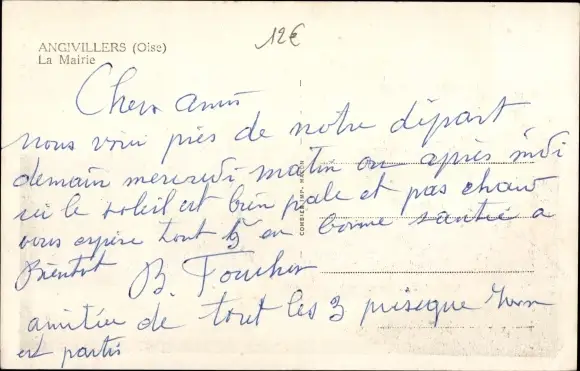 ANGIVILLERS (Oise)
La Mairie
12€
Chers amis
nous voici près de notre départ
demain mercredi matin ou après midi
ici le soleil est bien pale et pas chaud
vous espère tout 5 en bonne santée a
Bientot B.
amitiée de tout les 3 puisque
est partis
CORBIER IMP.